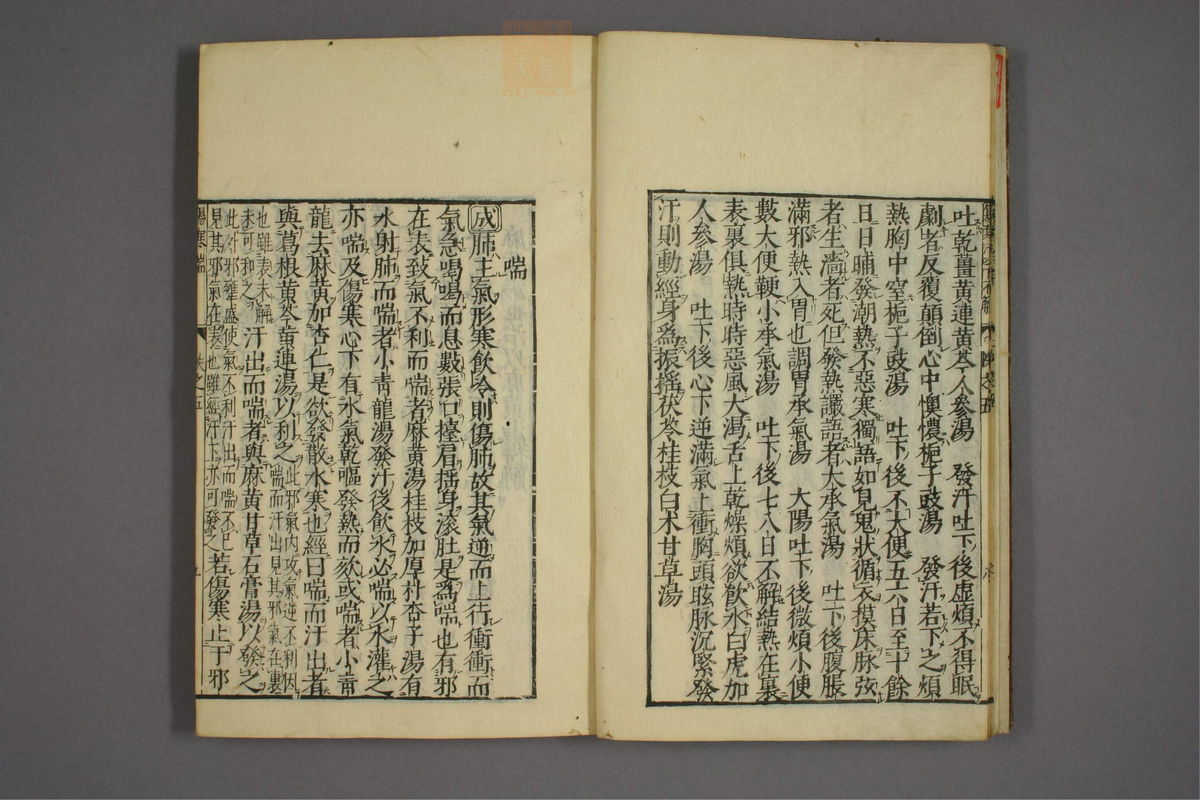 吐乾薑黃連黃芩人參湯　發汗吐下後虛煩不得眠
劇者反覆顛倒心中懊憹梔子豉湯　發汗若下之煩
熱胸中窒梔子豉湯　吐下後不大便五六日至十餘
日日晡發潮熱不惡寒獨語如見鬼狀循衣摸床脉弦
者生濇者死但發熱讝語者大承氣湯　吐下後腹脹
滿邪熱入胃也調胃承氣湯　大陽吐下後微煩小便
數大便鞕小承氣湯　吐下後七八日不解結熱在裏
表裏俱熱時時惡風大渴舌上乾燥煩欲飲水白虎加
人參湯　吐下後心下逆滿氣上衝胸頭眩脉沉緊發
汗則動經身爲振搖茯苓桂枝白术甘草湯
喘
成肺主氣形寒飲冷則傷肺故其氣逆而上行衝衝而
氣急喝喝而息數張口擡肩擂身滚肚是爲喘也有邪
在表致氣不利而喘者麻黃湯桂枝加厚朴杏子湯有
水射肺而喘者小青龍湯發汗後飲水必喘以水灌之
亦喘及傷寒心下有水氣乾嘔發熱而欬或喘者小青
龍去麻黃加杏仁是欲發散水寒也經曰喘而汗出者
與葛根黃芩黃連湯以利之此邪氣內攻氣逆不利因喘而汗出見其邪氣在裏
也雖表未解未可和之汗出而喘者與麻黃甘草石膏湯以發之
此外邪雍盛使氣不利汗出而喘不已見其邪氣在表也雖經汗下亦可發之若傷寒止于邪
傷寒喘
卷之五
五